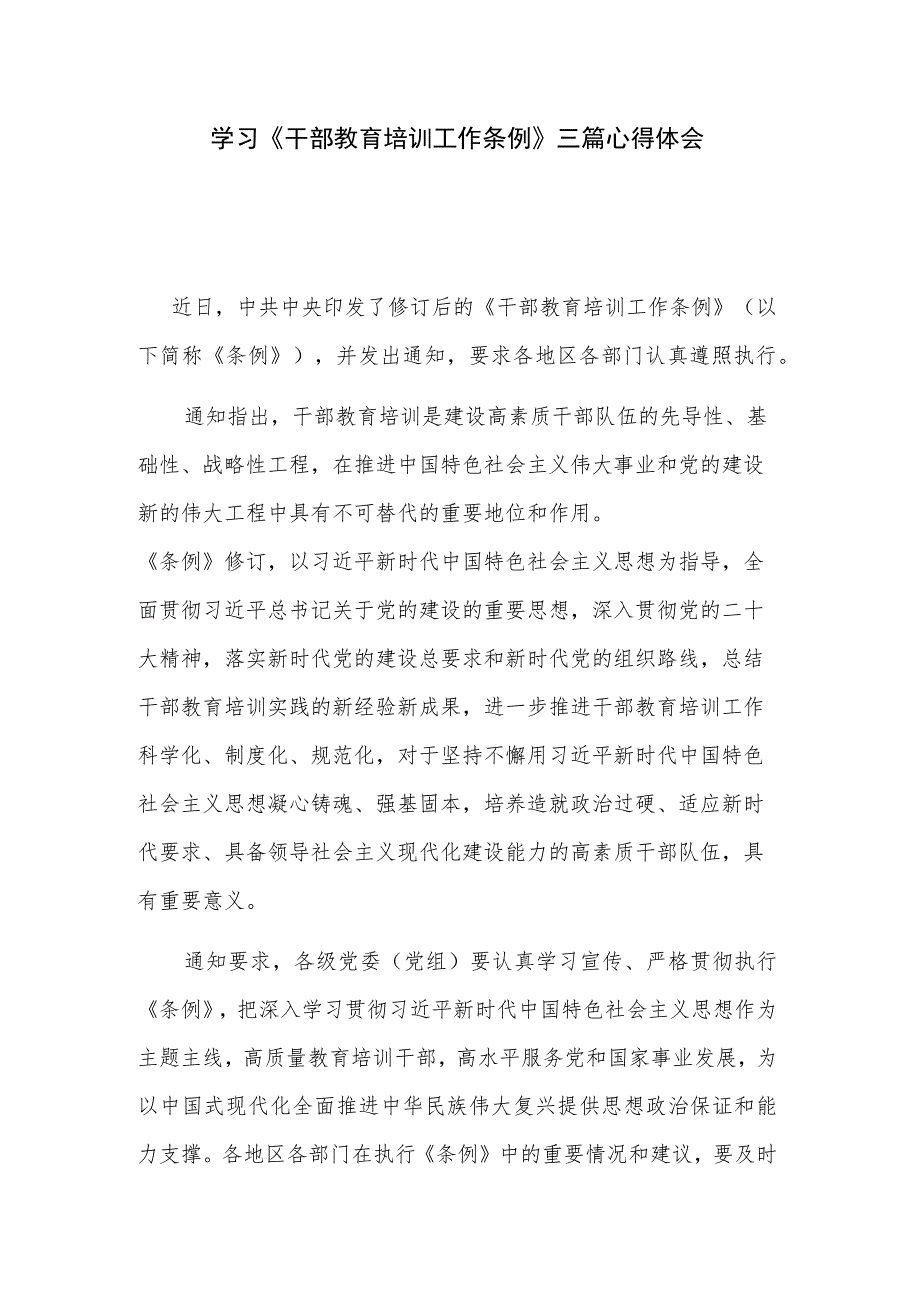 学习《干部教育培训工作条例》三篇心得体会
近日，中共中央印发了修订后的《干部教育培训工作条例》（以
下简称《条例》），并发出通知，要求各地区各部门认真遵照执行。
通知指出，干部教育培训是建设高素质干部队伍的先导性、基
础性、战略性工程，在推进中国特色社会主义伟大事业和党的建设
新的伟大工程中具有不可替代的重要地位和作用。
《条例》修订，以习近平新时代中国特色社会主义思想为指导，全
面贯彻习近平总书记关于党的建设的重要思想，深入贯彻党的二十
大精神，落实新时代党的建设总要求和新时代党的组织路线，总结
干部教育培训实践的新经验新成果，进一步推进干部教育培训工作
科学化、制度化、规范化，对于坚持不懈用习近平新时代中国特色
社会主义思想凝心铸魂、强基固本，培养造就政治过硬、适应新时
代要求、具备领导社会主义现代化建设能力的高素质干部队伍，具
有重要意义。
通知要求，各级党委（党组）要认真学习宣传、严格贯彻执行
《条例》，把深入学习贯彻习近平新时代中国特色社会主义思想作为
主题主线，高质量教育培训干部，高水平服务党和国家事业发展，为
以中国式现代化全面推进中华民族伟大复兴提供思想政治保证和能
力支撑。各地区各部门在执行《条例》中的重要情况和建议，要及时